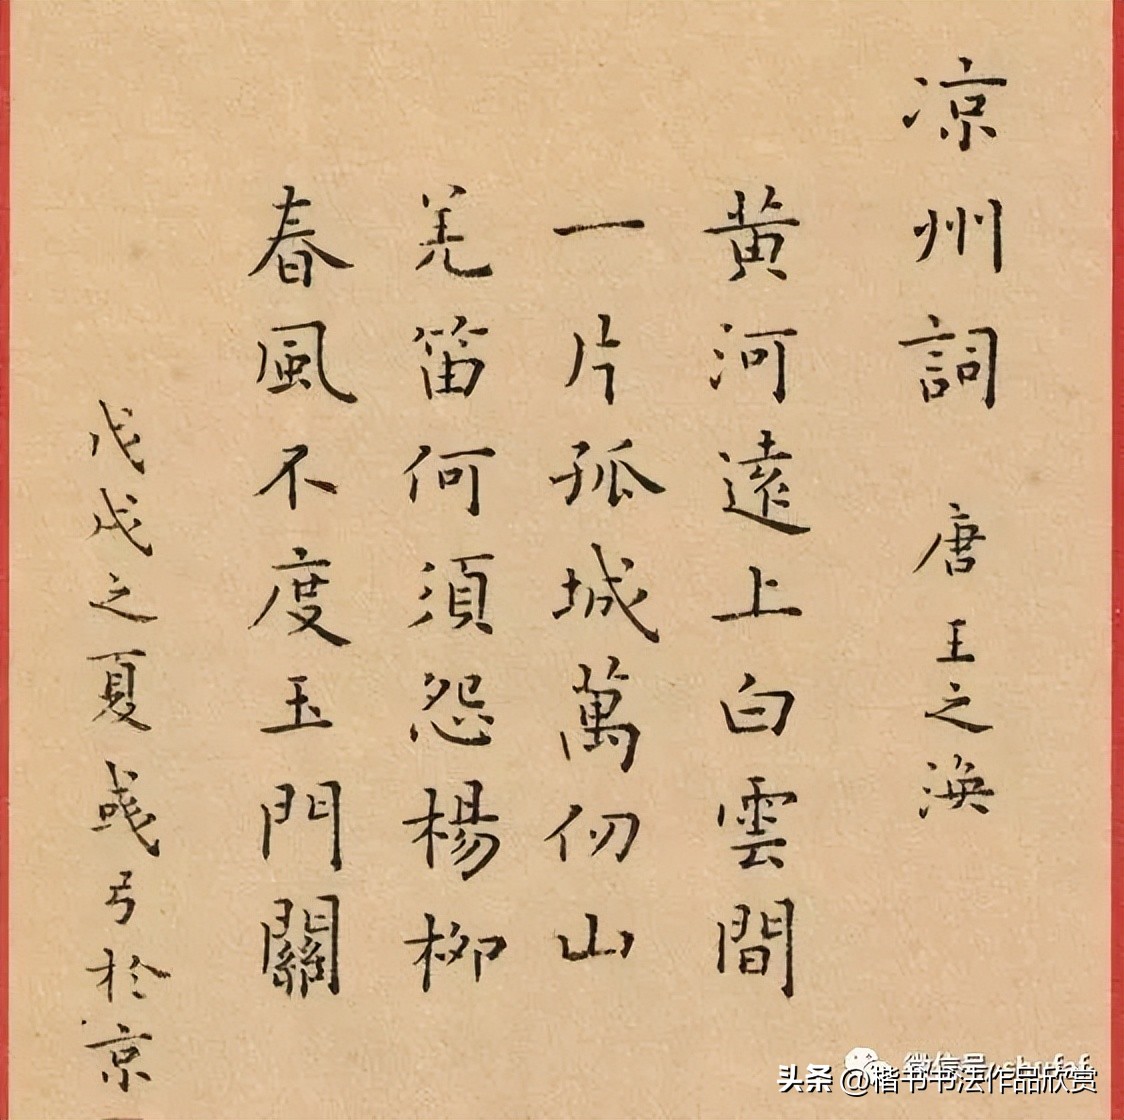 凉州詞 唐 王之渙
黄河遠上白雲間
一片孤城萬仞山
羌笛何須怨楊柳
春風不度玉門關
戊戌之夏彧弓於京
头条 @楷书书法作品欣赏